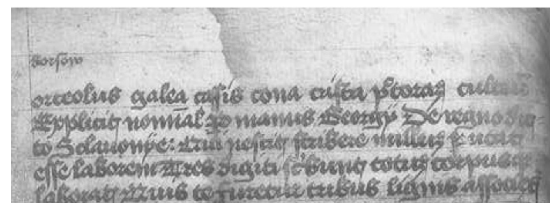 Gorsow
orceolus galea cassis cona crista pectoraᷤ cultrū
Explicit nomīale per manus Georgÿ De regno dic-
to Sclauonÿe: Qui nescit scribere nullus putat
esse laborem Tres digiti scbunt totus corpusqʒ
laborat Quis te furetur tribus lignis associetᷣ